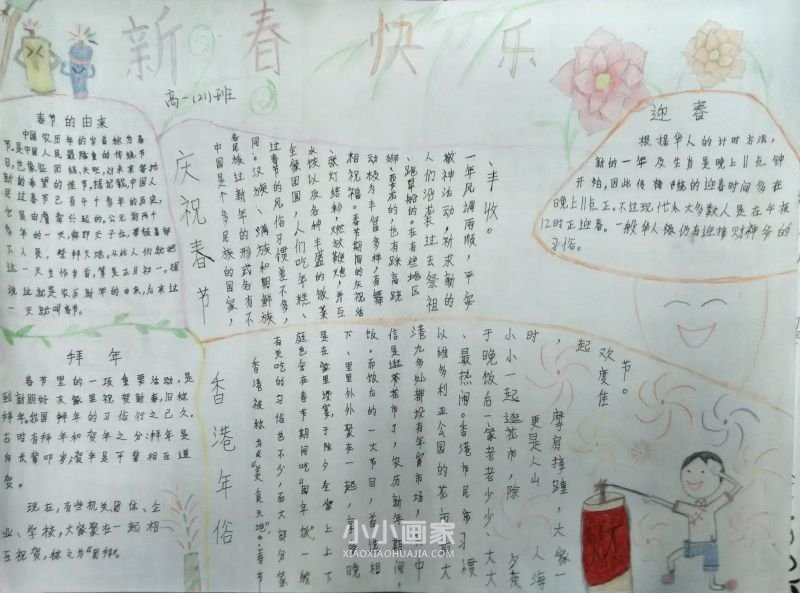 新春快乐
高一(21)班
春节的由来
中国农历年的岁首称为春
节。是中国人民最隆重的传统节
日,也象征团结、兴旺,对未来寄托
新的希望的佳节。据记载,中国人
民过春节已有4千多年的历史,
它是由虞舜兴起的。公元前两千
多年的一天,舜即天子位,带领着部
下人员,祭拜天地。从此,人们就把
这一天当作岁首,算是正月初一。据
说这就是农历新年的由来,后来这
一天就叫春节。
庆祝春节
中国是个多民族的国家,
各民族过新年的形式各有不
同。汉族、满族和朝鲜族
过春节的风俗习惯差不多,
全家团圆,人们吃年糕、
水饺以及各种丰盛的饭菜
、张灯结彩,燃放鞭炮,并互
相祝福。春节期间的庆祝活
动极为丰富多样,有舞
狮、耍龙的,也有踩高跷
、跑旱船的。在有些地区
人们沿袭过去祭祖
敬神活动,祈求新的
一年风调雨顺,平安
、丰收。
迎春
根据华人的计时方法,
新的一年及生肖是晚上11点钟
开始,因此传统的迎春时间多在
晚上11点正。不过现代未大多数人是在午夜
12时正迎春。一般华人族仍有迎接财神爷的
习俗。
拜年
春节里的一项重要活动,是
到新朋好友家里祝贺新春,旧称
拜年。我国拜年的习俗们之已久。
古时有拜年和贺年之分:拜年是
向长辈叩岁;贺年是平辈相互道
贺。
现在,有些机关团体、企
业、学校,大家聚在一起相
互祝贺,称之为"团拜。
香港年俗
香港被称为"美食天地",春节
有关吃的习俗也不少,而大部分家
庭也会在春节期间吃"团年饭"。一般
是在家里设宴,于除夕全家上上下
下、里里外外聚在一起,享
饭。而饭后的一大节目,首推相
信是逛年花市了,农历新年期间,
港九多处都设有年宵市场,其中
以维多利亚公园的花市最大
、最热闹。香港市民都习惯
于晚饭后一家老老少少、大大
小小一起逛花市,除夕夜
时更是人山人海
,摩肩接踵,大家一
起欢度佳
节。
财
小小画家
XIAOXIAOHUAJIA.COM